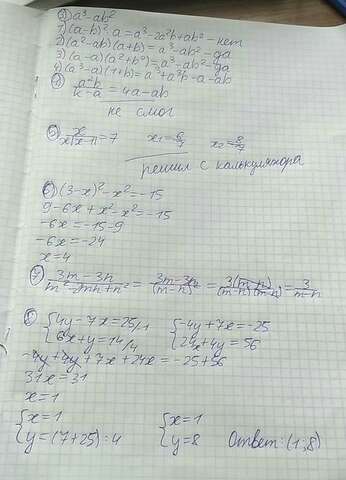 3) a³-ab²
1) (a-b)²·a = a³-2a²b+ab² - нет
2) (a²-ab)(a+b) = a³-ab² - да
3) (a-a)(a²+b²) = a³-ab² - да
4) (a³-a)(1+b) = a³+a³b-a-ab
= 4a-ab
не смог
5) =7 x₁= x₂=
решил с калькулятора
6) (3-x)²-x²=-15
9-6x+x²-x²=-15
-6x=-15-9
-6x=-24
x=4
7) (3m-3n)/(m²-2mn+n²) = (3m-3n)/(m-n)² = 3(m-n)/((m-n)(m-n)) = 3/(m-n)
8) {4y-7x=25/·1 {-4y+7x=-25
{6x+y=14/4 {24x+4y=56
-4y+4y+7x+24x=-25+56
31x=31
x=1
{x=1 {x=1
{y=(7+25):4 {y=8 Ответ: (1;8)